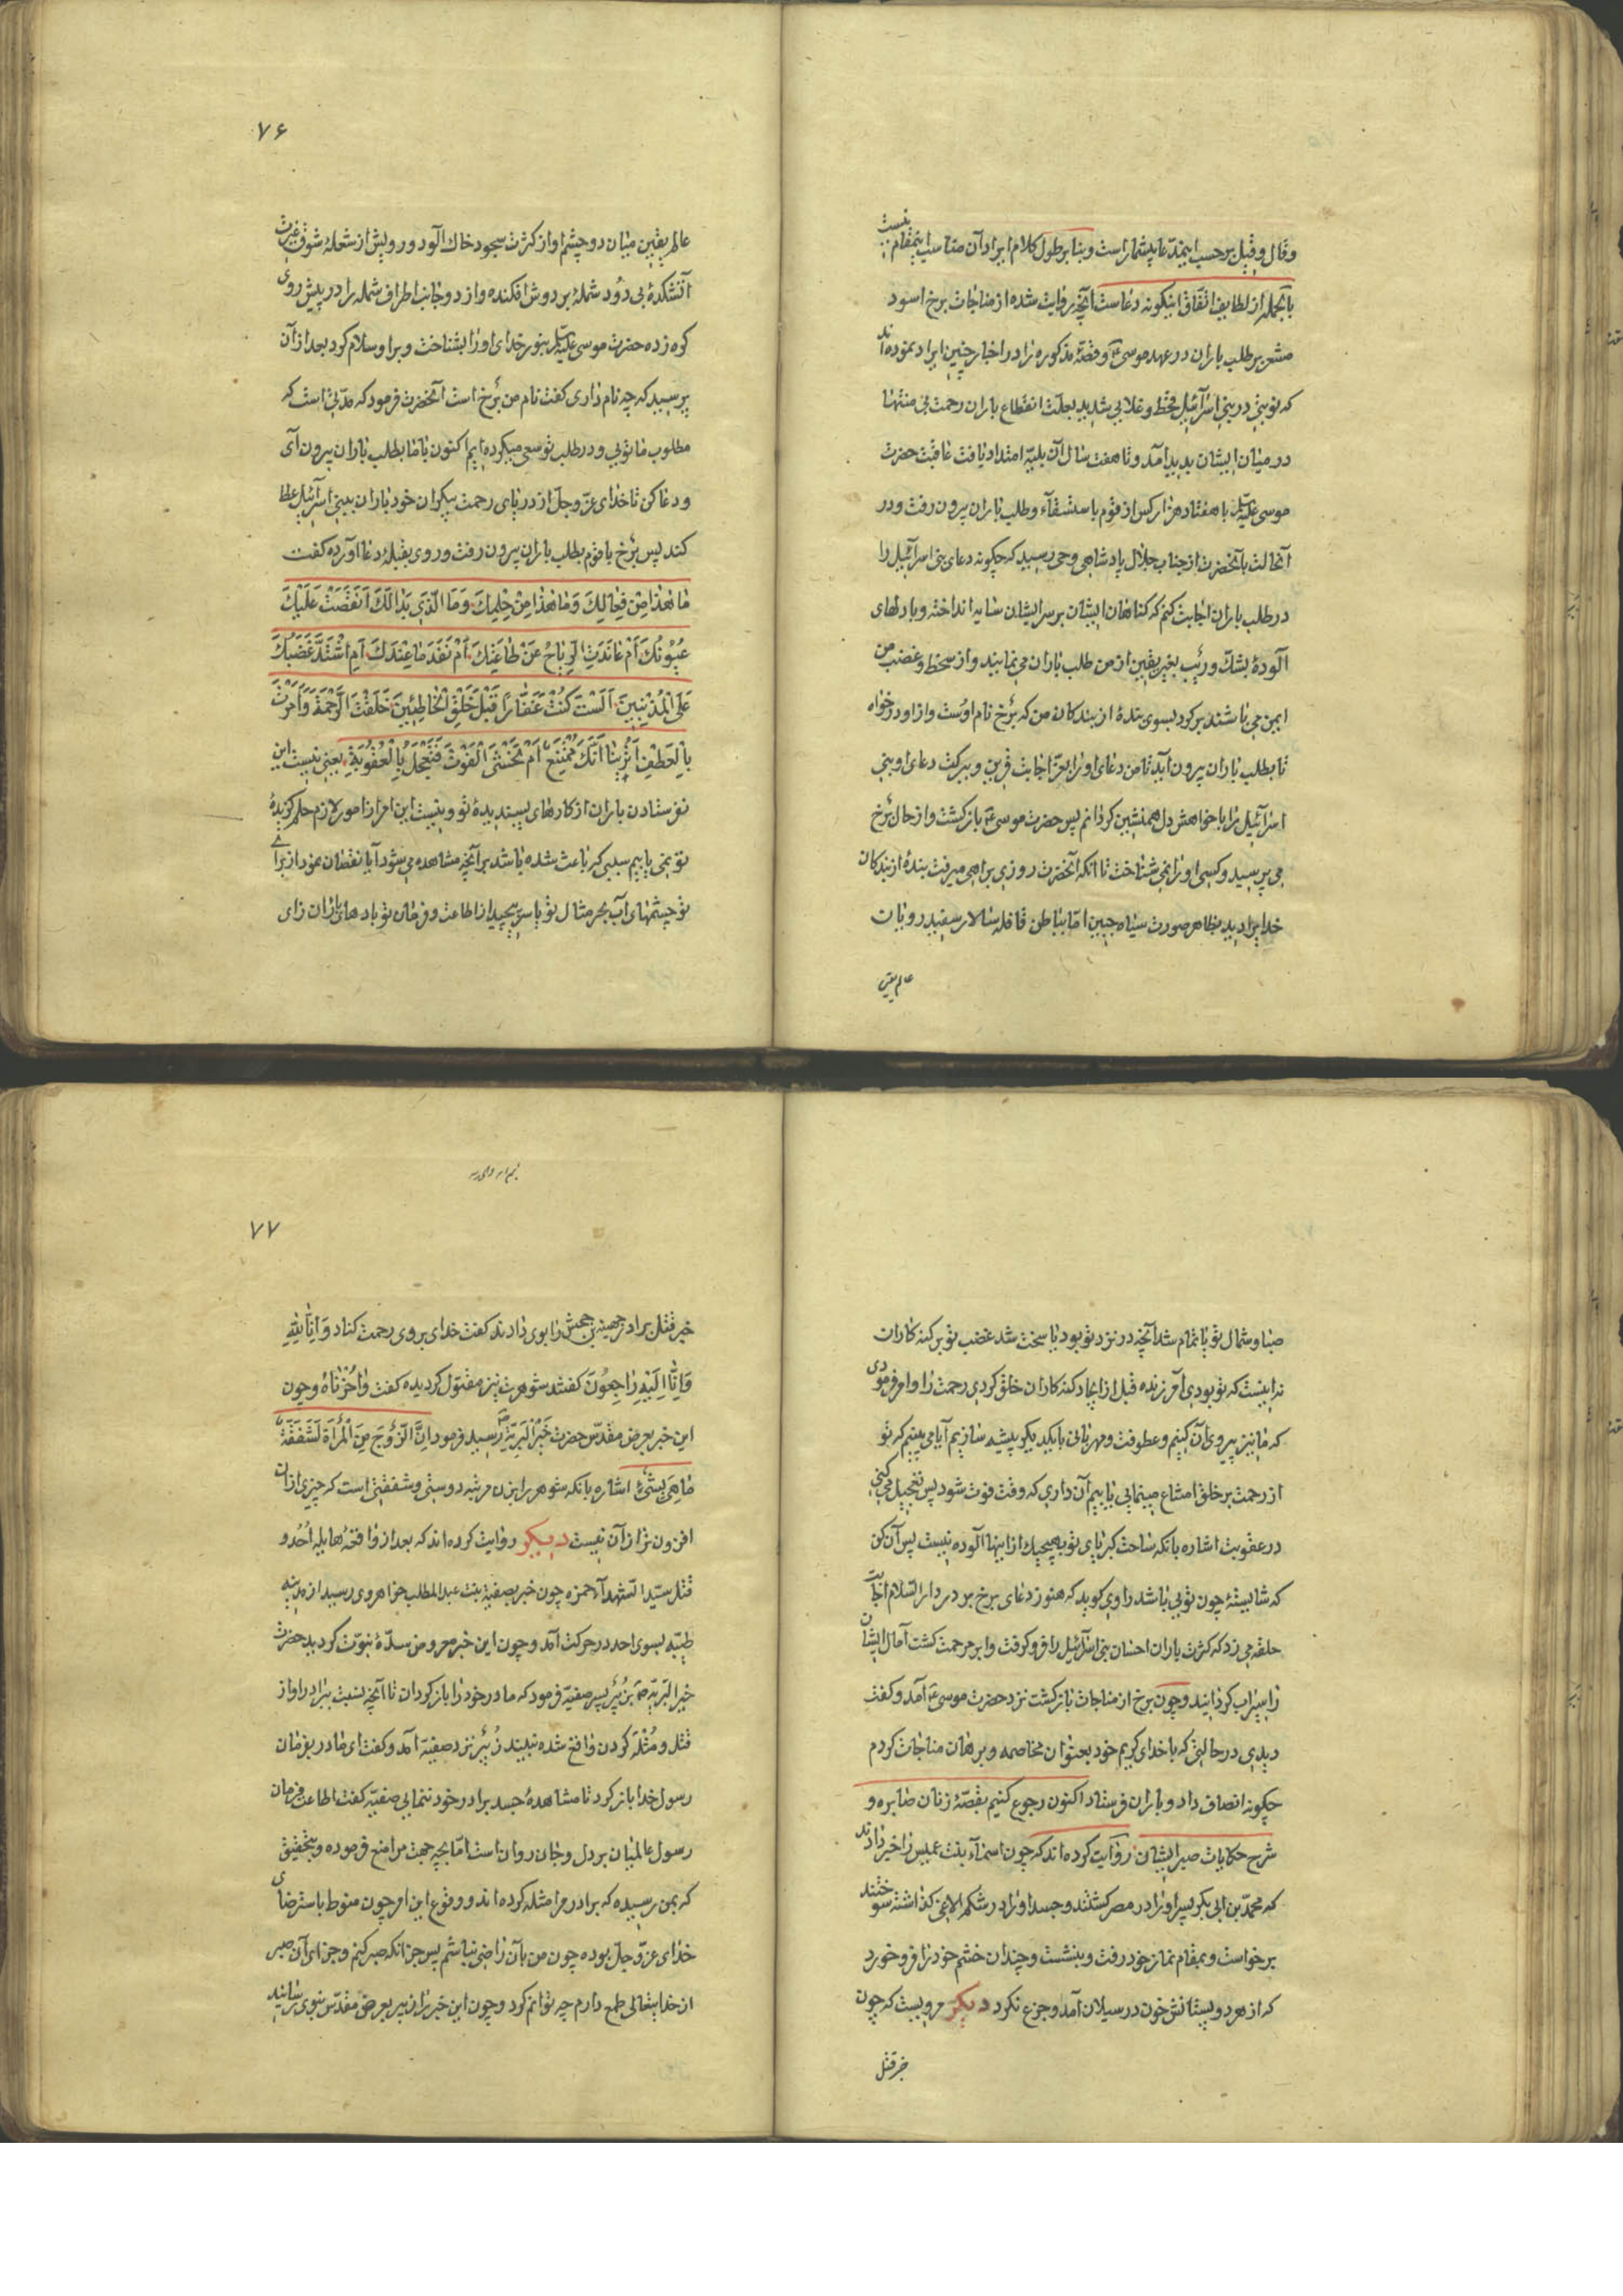 وقال وقیل برحسب اینمدّعا بیشمار است و بنا بر طول کلام ایراد آن مناسب اینمقام نیست
بالجمله از لطایف اتّفاق اینکونه دعاست آنچه روایت شده از مناجات برخ اسود
مشعر بر طلب باران در عهد موسی ع و قصّهٔ مذکوره را در اخبار چنین ایراد نموده‌اند
که نوبتی در بنی اسرآئیل قحط و غلایی شدید بعلّت انقطاع باران رحمت بی منتها
در میان ایشان پدید آمد و تا هفت سال آن بلیّه امتداد یافت عاقبت حضرت
موسی علیه السلم با هفتاد هزار کس از قوم باستسقآء و طلب باران بیرون رفت و در
آنحالت بآنحضرت از جناب جلال پادشاهی وحی رسید که چکونه دعای بنی اسرآئیل را
در طلب باران اجابت کنم که کناهان ایشان بر سر ایشان سایه انداخته و با دلهای
آلودهٔ بشکّ و ریب بغیر یقین از من طلب باران می‌نمایند و از سخط و غضب من
ایمن می باشند برکرد بسوی بندهٔ از بندکان من که برخ نام اوست و از او درخواه
تا بطلب باران بیرون آید تا من دعای او را بعزّ اجابت قرین و ببرکت دعای او بنی
اسرآئیل را با خواهش دل همنشین کردانم پس حضرت موسی ع بازکشت و از حال برخ
می پرسید و کسی او را نمی شناخت تا آنکه آنحضرت روزی براهی میرفت بندهٔ از بندکان
خدا را دید بظاهر صورت سیاه جبین امّا بباطن قافله سالار سفید رویان
عالم یقین
۷۶
عالم یقین میان دو چشم او از کثرت سجود خاک آلود و رویش از شعلهٔ شوق غیرت
آتشکدهٔ بی دود شملهٔ بر دوش افکنده و از دو جانب اطراف شمله را در پیش روی
کره زده حضرت موسی علیه السلم بنور خدای او را بشناخت و بر او سلام کرد بعد از آن
پرسید که چه نام داری کفت نام من برخ است آنحضرت فرمود که مدّتی است که
مطلوب ما تویی و در طلب تو سعی میکرده‌ایم اکنون با ما بطلب باران بیرون آی
و دعا کن تا خدای عزّ و جلّ از دریای رحمت بیکران خود باران ببنی اسرآئیل عطا
کند پس برخ با قوم بطلب باران بیرون رفت و روی بقبلهٔ دعا آورده کفت
ما هٰذا مِنْ فِعالِکَ وَما هٰذا مِنْ حِلْمِکَ وَمَا الَّذی بَدا لَکَ اَنَقَصَتْ عَلَیْکَ
عُیُونُکَ اَمْ عانَدَتِ الرِّیاحُ عَنْ طاعَتِکَ اَمْ نَفَدَ ما عِنْدَکَ اَمِ اشْتَدَّ غَضَبُکَ
عَلَی الْمُذْنِبینَ اَلَسْتَ کُنْتَ غَفّاراً قَبْلَ خَلْقِ الْخاطِئینَ خَلَقْتَ الرَّحْمَةَ وَاَمَرْتَ
بِالْعَطْفِ اَتُرینا اَنَّکَ مُمْتَنِعٌ اَمْ تَخْشَی الْفَوْتَ فَتُعَجِّلَ بِالْعُقُوبَةِ یعنی نیست این
نفرستادن باران از کارهای پسندیدهٔ تو و نیست این امر از امور لازم حلم کزیدهٔ
تو نمی یابیم سببی که باعث شده باشد بر آنچه مشاهده می شود آیا نقصان نمود از برای
تو چشمهای آب بحر مثال تو یا سر پیچید از اطاعت و فرمان تو بادهای باران زای
صبا و شمال تو یا تمام شد آنچه در نزد تو بود یا سخت شد غضب تو بر کنه کاران
نه اینست که تو بودی آمرزنده قبل از ایجاد کنه کاران خلق کردی رحمت را و امر فرمودی
که ما نیز پیروی آن کنیم و عطوفت و مهربانی با یکدیکر پیشه سازیم آیا می بینیم که تو
از رحمت بر خلق امتناع مینمایی یا بیم آن داری که وقت فوت شود پس تعجیل می کنی
در عقوبت اشاره بانکه ساحت کبریای تو بهیچیک از اینها آلوده نیست پس آن کن
که شایستهٔ چون تویی باشد راوی کوید که هنوز دعای برخ بر در دار السّلام اجابت
حلقه می زد که کثرت باران احسان بنی اسرآئیل را فرو کرفت و ابر مرحمت کشت آمال ایشان
را سیراب کردانید و چون برخ از مناجات بازکشت نزد حضرت موسی ع آمد و کفت
دیدی در حالتی که با خدای کریم خود بعنوان مخاصمه و برهان مناجات کردم
چکونه انصاف داد و باران فرستاد اکنون رجوع کنیم بقصّهٔ زنان صابره و
شرح حکایات صبر ایشان روایت کرده‌اند که چون اسمآء بنت عمیس را خبر دادند
که محمّد بن ابی بکر پسر او را در مصر کشتند و جسد او را در شکم الاغی کذاشته سوختند
برخواست و بمقام نماز خود رفت و بنشست و چندان خشم خود را فرو خورد
که از هر دو پستانش خون در سیلان آمد و جزع نکرد دیکر مرویست که چون
خبر قتل
۷۷
خبر قتل برادر جهینه بن جحش را بوی دادند کفت خدای بر وی رحمت کناد وَ اِنّا لِلّٰهِ
وَاِنّا اِلَیْهِ راجِعُونَ کفتند شوهرت نیز مقتول کردیده کفت واحُزْناهُ و چون
این خبر بعرض مقدّس حضرت خَیْرُ الْبَرِیَّه رسید فرمود اِنَّ الزَّوْجَ مِنَ الْمَرْأَةِ لَشَفَقَةً
ما هِیَ بِشَیْءٍ اشاره بانکه شوهر را بزن مرتبهٔ دوستی و شفقتی است که چیزی از آن
افزون تر از آن نیست دیکر روایت کرده‌اند که بعد از واقعهٔ هایلهٔ اُحُد و
قتل سیّد الشهدآء حمزه چون خبر بصفیّه بنت عبدالمطلب خواهر وی رسید از مدینه
طیّبه بسوی احد در حرکت آمد و چون این خبر معروض سدّهٔ نبوّت کردید حضرت
خیر البریّه ص زُبَیْر پسر صفیّه فرمود که مادر خود را بازکردان تا آنچه نسبت ببرادر او از
قتل و مُثْلَه کردن واقع شده نبیند زُبَیْر نزد صفیّه آمد و کفت ای مادر بفرمان
رسول خدا بازکرد تا مشاهدهٔ جسد برادر خود ننمایی صفیّه کفت اطاعت فرمان
رسول عالمیان بر دل و جان روان است امّا بچه جهت مرا منع فرموده و بتحقیق
که بمن رسیده که برادر مرا مثله کرده‌اند و وقوع این امر چون منوط باسترضای
خدای عزّ و جلّ بوده چون من بآن راضی نباشم پس جز آنکه صبر کنم و جزای آن صبر
از خدایتعالی طمع دارم چه توانم کرد و چون این خبر را زبیر بعرض مقدّس نبوی رسانید